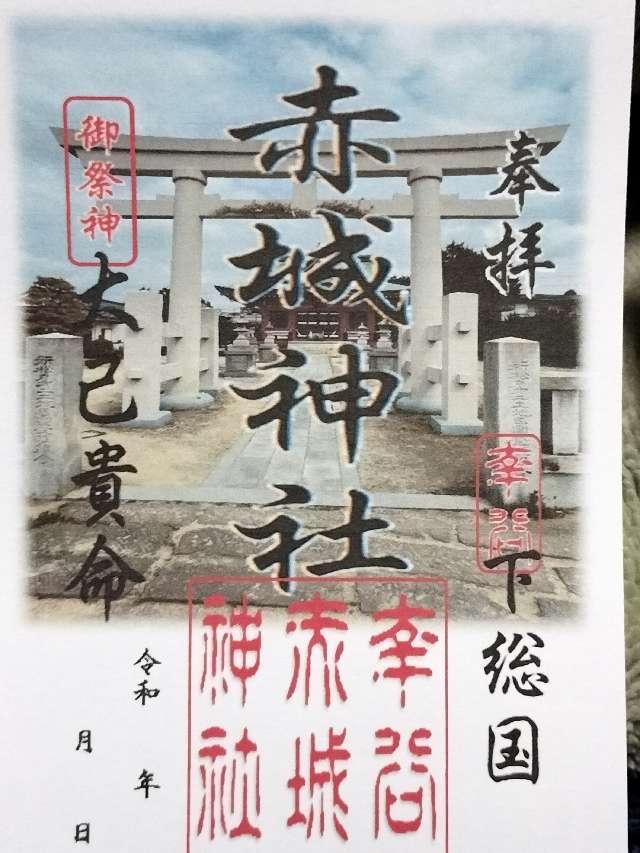 奉拝
幸谷
下総国
赤城神社
幸谷
赤城
神社
御祭神
大己貴命
令和　年
月　日